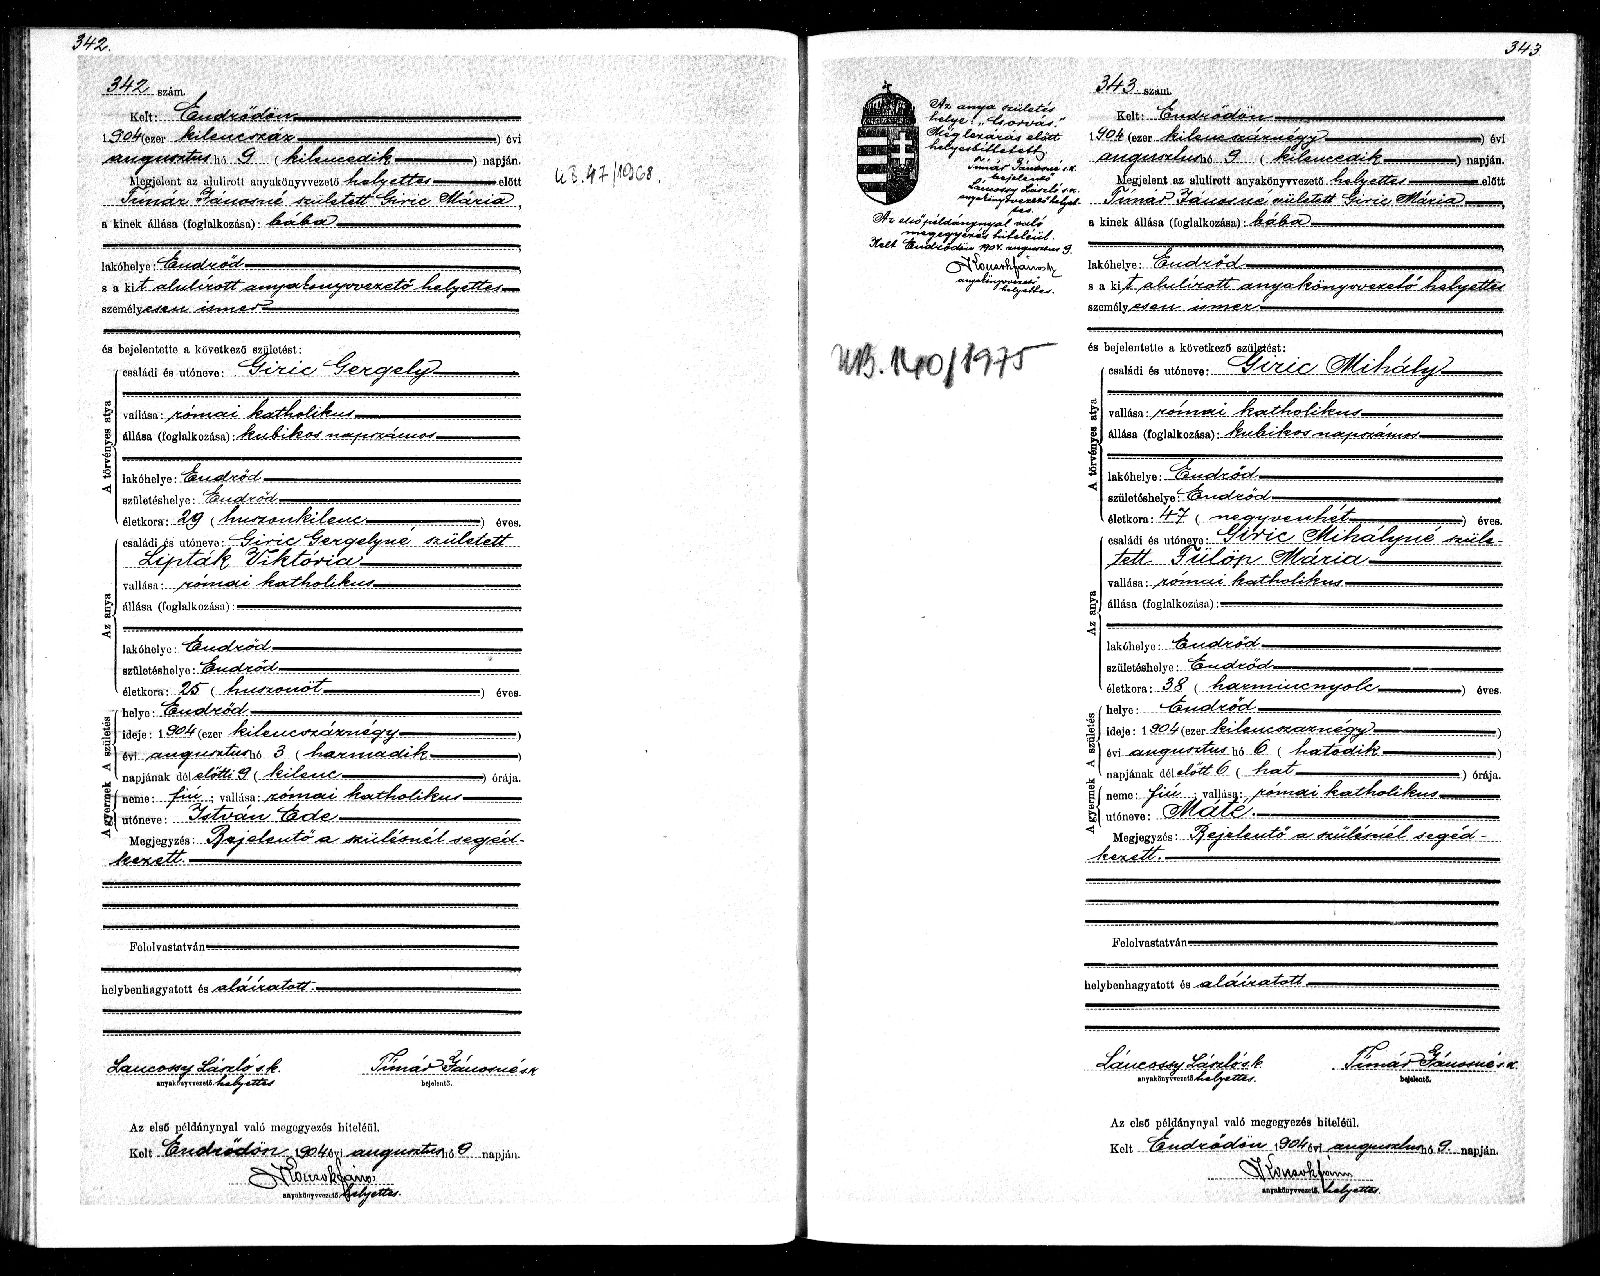 342.
342 szám.
Kelt: Endrődön
1904 (ezer kilencszáz ) évi
augusztus hó 9 ( kilencedik ) napján.
Megjelent az alulirott anyakönyvvezető helyettes előtt
Tímár Jánosné született Giric Mária,
a kinek állása (foglalkozása): bába
lakóhelye: Endrőd
s a kit alulírott anyakönyvvezető helyettes
személyesen ismer
és bejelentette a következő születést:
A törvényes atya
családi és utóneve: Giric Gergely
vallása: római katholikus
állása (foglalkozása): kubikos napszámos
lakóhelye: Endrőd
születéshelye: Endrőd
életkora: 29 ( huszonkilenc ) éves.
Az anya
családi és utóneve: Giric Gergelyné született
Lipták Viktória
vallása: római katholikus
állása (foglalkozása):
lakóhelye: Endrőd
születéshelye: Endrőd
életkora: 25 ( huszonöt ) éves.
A születés
helye: Endrőd
ideje: 1904 (ezer kilencszáznégy )
évi augusztus hó 3 ( harmadik )
napjának dél előtti 9 ( kilenc ) órája.
A gyermek
neme: fiú ; vallása: római katholikus
utóneve: István Ede
Megjegyzés: Bejelentő a szülésnél segéd-
kezett.
Felolvastatván
helybenhagyatott és aláíratott.
Láncossy László s.k. Tímár Jánosné s.k.
anyakönyvvezető helyettes bejelentő.
Az első példánynyal való megegyezés hiteléül.
Kelt Endrődön 1904 évi augusztus hó 9 napján.
anyakönyvvezető helyettes.
U.B. 47/1968.
343
Az anya születés
helye: "Csorvás."
Még lezárás előtt
helyesbittetett
Tímár Jánosné s.k.
bejelentő
Láncossy László s.k.
anyakönyvvezető helyet-
tes.
Az első példánynyal való
megegyezés hiteléül.
Kelt Endrődön 1904. augusztus 9.
anyakönyvvezető
helyettes.
UB. 140/1975
343 szám.
Kelt: Endrődön
1904 (ezer kilencszáznégy ) évi
augusztus hó 9 ( kilencedik ) napján.
Megjelent az alulirott anyakönyvvezető helyettes előtt
Tímár Jánosné született Giric Mária,
a kinek állása (foglalkozása): bába
lakóhelye: Endrőd
s a kit alulírott anyakönyvvezető helyettes
személyesen ismer
és bejelentette a következő születést:
A törvényes atya
családi és utóneve: Giric Mihály
vallása: római katholikus
állása (foglalkozása): kubikos napszámos
lakóhelye: Endrőd
születéshelye: Endrőd
életkora: 47 ( negyvenhét ) éves.
Az anya
családi és utóneve: Giric Mihályné szüle-
tett Fülöp Mária
vallása: római katholikus
állása (foglalkozása):
lakóhelye: Endrőd
születéshelye: Endrőd
életkora: 38 ( harmincnyolc ) éves.
A születés
helye: Endrőd
ideje: 1904 (ezer kilencszáznégy )
évi augusztus hó 6 ( hatodik )
napjának dél előtt 6 ( hat ) órája.
A gyermek
neme: fiú ; vallása: római katholikus
utóneve: Máté.
Megjegyzés: Bejelentő a szülésnél segéd-
kezett.
Felolvastatván
helybenhagyatott és aláíratott
Láncossy László s.k. Tímár Jánosné s.k.
anyakönyvvezető helyettes. bejelentő.
Az első példánynyal való megegyezés hiteléül.
Kelt Endrődön 1904 évi augusztus hó 9. napján.
anyakönyvvezető helyettes.